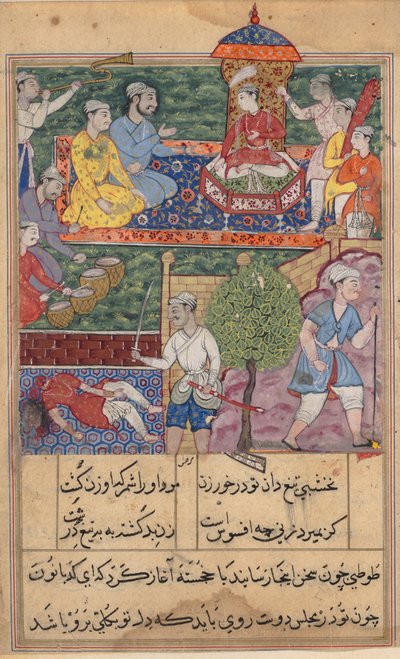 نخشبی تیغ دان تو در خور زن مرد او را شمر که او زن کشت
گر بمیرد زنی چه افسوس است زن بد کشته به بتیغ درشت
طوطی چون سخن اینجا رسانید با خجسته آغاز کرد که ای کدبانو
چون تو در مجلس دوست روی باید که دل تو بکلی بر وی باشد